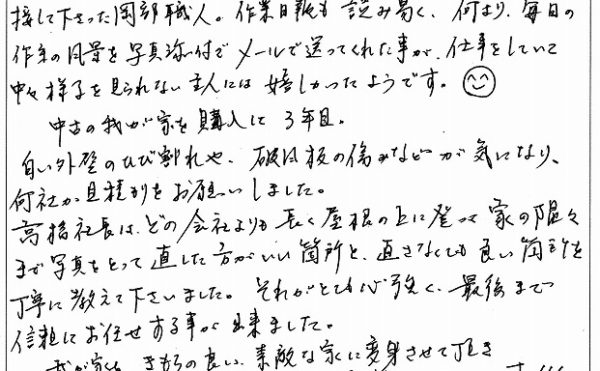 接して下さった岡部職人。作業日報も読み易く、何より、毎日の
作業の風景を写真添付でメールで送ってくれた事が、仕事をしていて
中々様子を見られない主人には嬉しかったようです。
中古の我が家を購入して3年目。
白い外壁のひび割れや、破風板の傷みなどが気になり、
何社か見積りをお願いしました。
高橋社長は、どの会社よりも長く屋根の上に登って家の隅々
まで写真をとって直した方がいい箇所と、直さなくても良い箇所を
丁寧に教えて下さいました。それがとても心強く、最後まで
信頼にお任せする事が出来ました。
我が家も、きもちの良い、素敵な家に変身させて頂き